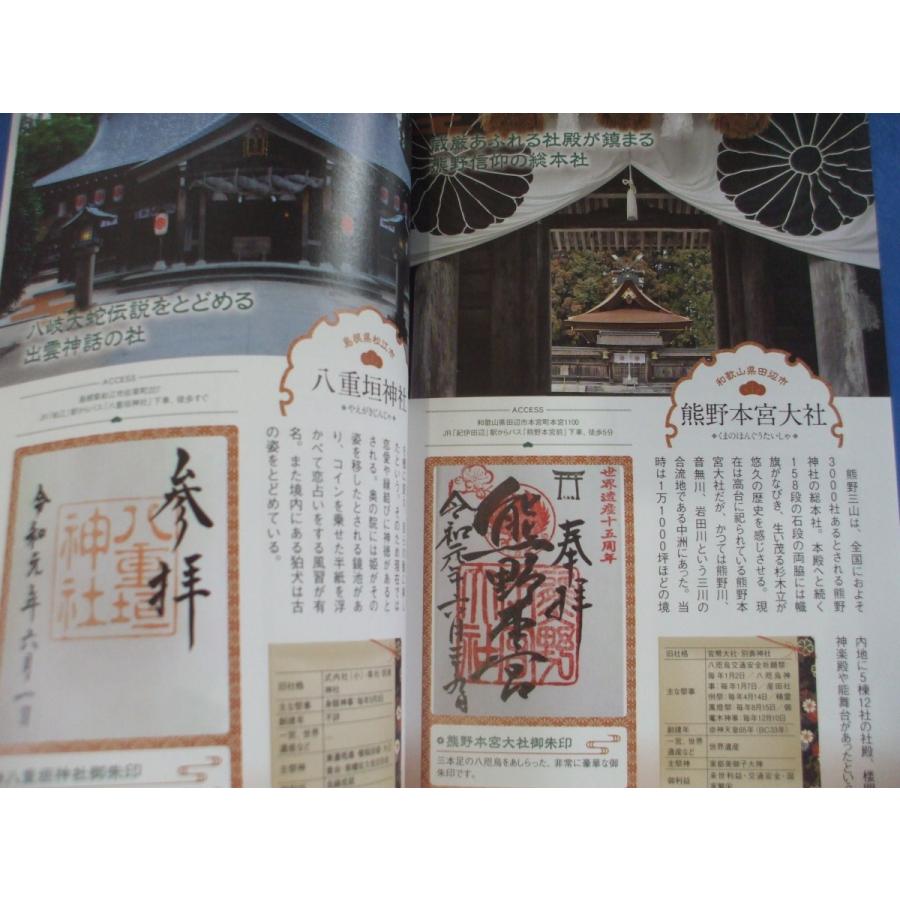 八岐大蛇伝説をとどめる
出雲神話の社
島根県松江市
八重垣神社
やえがきじんじゃ
ACCESS
島根県松江市佐草町227
JR「松江」駅からバス「八重垣神社」下車、徒歩すぐ
恋愛や縁結びに神徳があると
される。奥の院には姫がその
姿を移したとされる鏡池があ
り、コインを乗せた半紙を浮
かべて恋占いをする風習が有
名。また境内にある狛犬は古
の姿をとどめている。
参拝
八重垣神社
令和元年六月一日
八重垣神社御朱印
旧社格
主な祭事
創建年
不詳
一宮、世界遺産など
主祭神
威厳あふれる社殿が鎮まる
熊野信仰の総本社
和歌山県田辺市
熊野本宮大社
くまのほんぐうたいしゃ
ACCESS
和歌山県田辺市本宮町本宮1100
JR「紀伊田辺」駅からバス「熊野本宮前」下車、徒歩5分
熊野三山は、全国におよそ
3000社あるとされる熊野
神社の総本社。本殿へと続く
158段の石段の両脇には幟
旗がなびき、生い茂る杉木立が
悠久の歴史を感じさせる。現
在は高台に祀られている熊野本
宮大社だが、かつては熊野川、
音無川、岩田川という三川の
合流地である中洲にあった。当
時は1万1000坪ほどの境
内地に5棟12社の社殿、楼門
神楽殿や能舞台があったとい
世界遺産十五周年
奉拝
熊野本宮
熊野本宮大社御朱印
三本足の八咫烏をあしらった、非常に豪華な御
朱印です。
旧社格
官幣大社・別表神社
主な祭事
八咫烏交通安全祈願祭:
毎年1月2日／八咫烏神
事:毎年1月7日／産田社
例祭:毎年4月14日 精霊
萬燈祭:毎年8月15日／御
竃木神事:毎年12月10日
創建年
崇神天皇65年（BC33年）
一宮、世界遺産など
世界遺産
主祭神
家都美御子大神
御利益
来世利益・交通安全・国